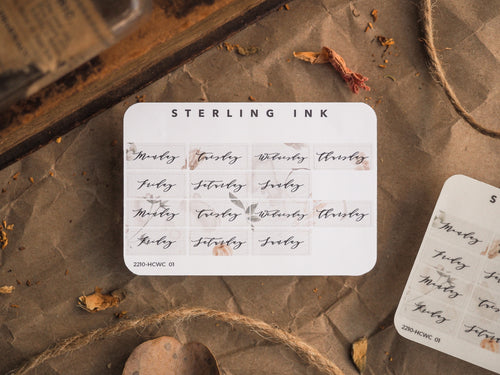 STERLING INK
Monday Tuesday Wednesday Thursday
Friday Saturday Sunday
Monday Tuesday Wednesday Thursday
Friday Saturday Sunday
2210-HCWC 01
S
Monday
Friday
Monday
Friday
2210-HCWC 01